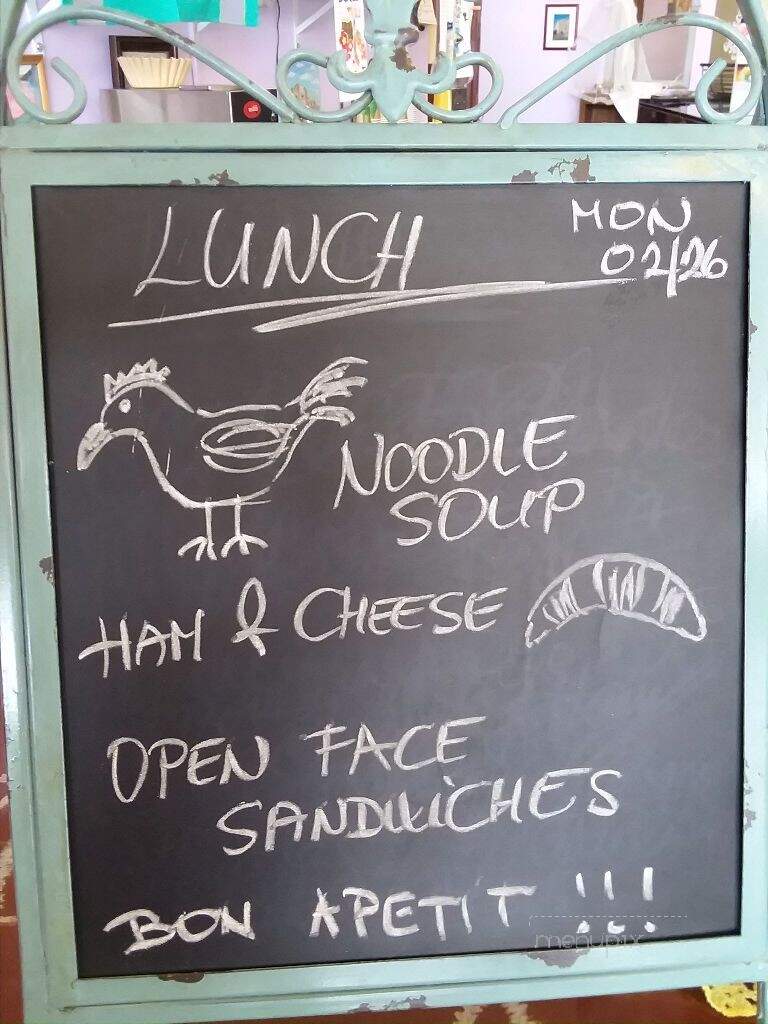 LUNCH
MON
02/26
NOODLE
SOUP
HAM & CHEESE
OPEN FACE
SANDWiCHES
BON APETIT !!!
menupix